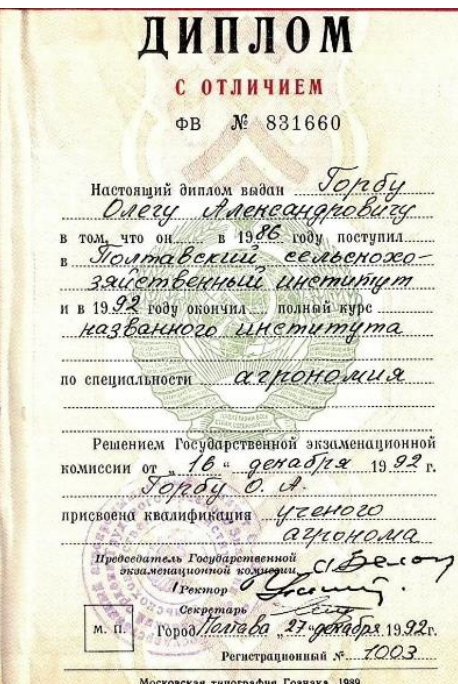 ДИПЛОМ
С ОТЛИЧИЕМ
ФВ № 831660
Настоящий диплом выдан Горбу
Олегу Александровичу
в том, что он в 1986 году поступил
в Полтавский сельскохо-
зяйственный институт
и в 1992 году окончил полный курс
названного института
по специальности агрономия
Решением Государственной экзаменационной
комиссии от „16“ декабря 1992 г.
Горбу О. А.
присвоена квалификация ученого
агронома
Председатель Государственной
экзаменационной комиссии
Ректор
Секретарь
М. П.
Город Полтава „27“ декабря 1992г.
Регистрационный № 1003
Московская типография Гознака. 1989.